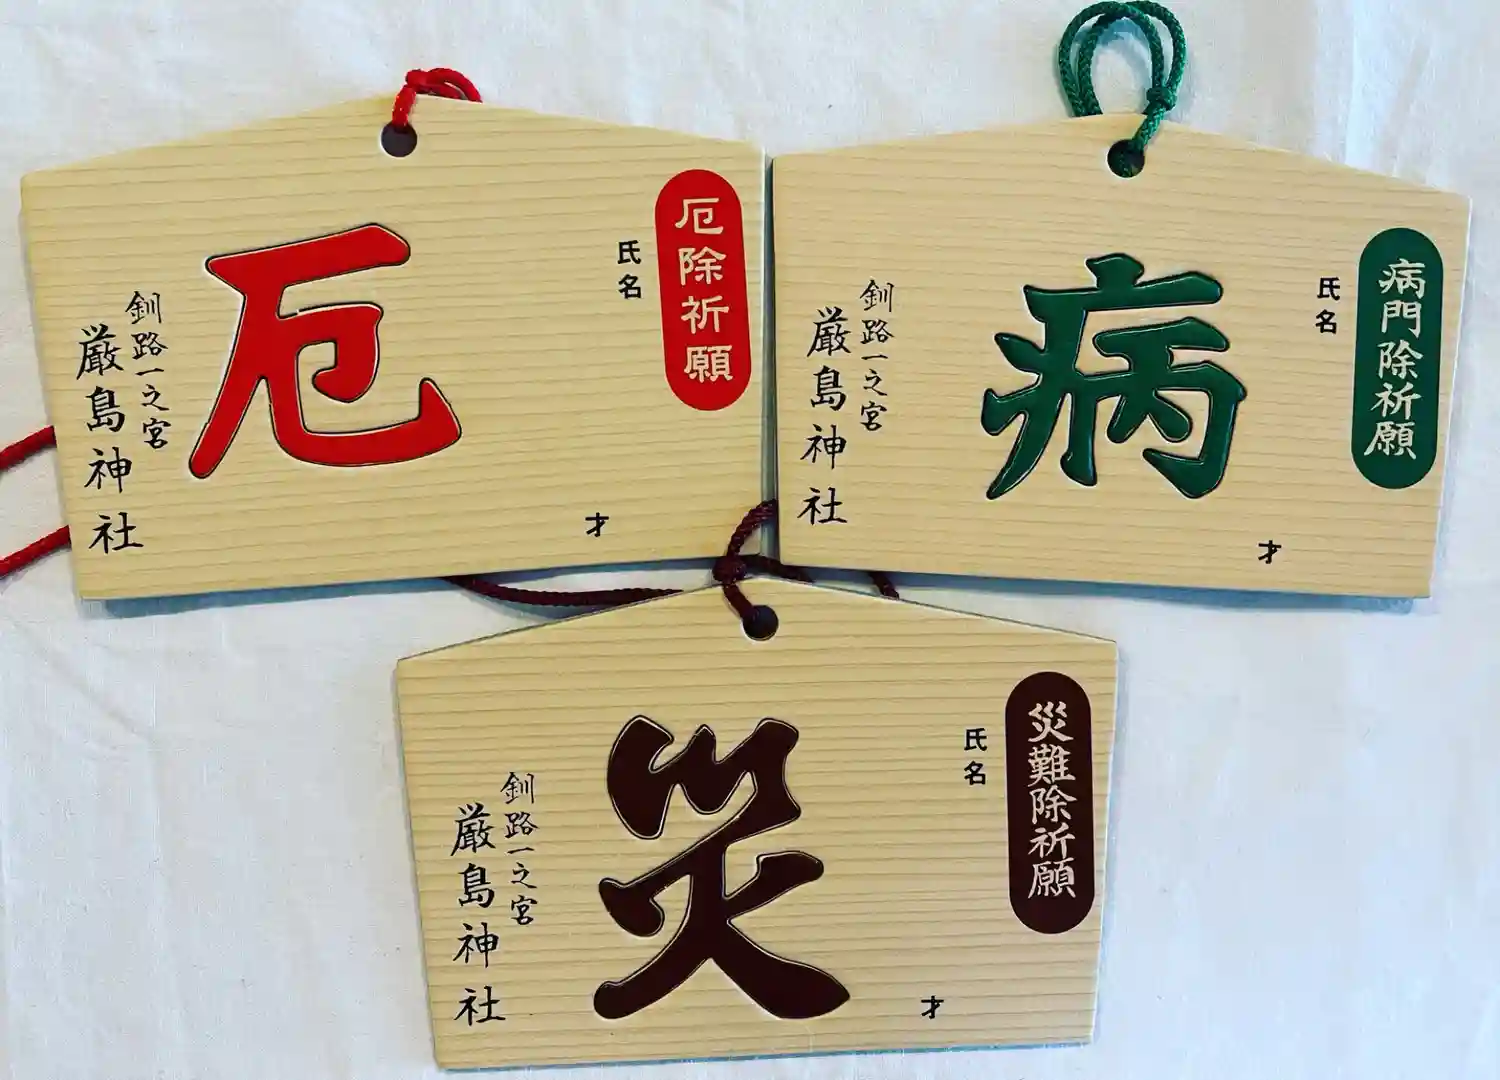 厄除祈願
氏名
才
厄
釧路一之宮
厳島神社
病門除祈願
氏名
才
病
釧路一之宮
厳島神社
災難除祈願
氏名
才
災
釧路一之宮
厳島神社